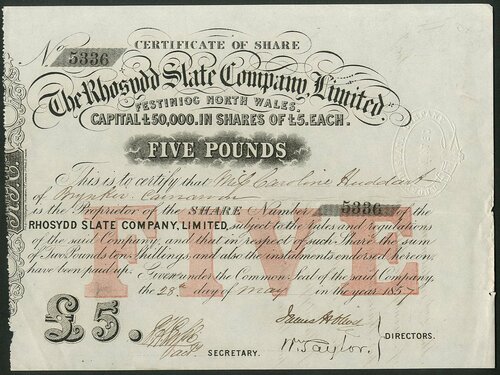 No 5336
CERTIFICATE OF SHARE
The Rhosydd Slate Company, Limited.
FESTINIOG NORTH WALES.
CAPITAL £50,000. IN SHARES OF £5. EACH.
FIVE POUNDS
This is to certify that Miss Caroline Huddart
of Brynkir Carnarvon
is the Proprietor of the SHARE Number 5336 of the
RHOSYDD SLATE COMPANY, LIMITED, subject to the Rules and regulations
of the said Company, and that in respect of such Share the sum
of Two Pounds ten Shillings and also the instalments endorsed hereon
have been paid up. Given under the Common Seal of the said Company.
the 28th day of May in the year 1857
FIVE
£5.
SECRETARY.
W. Taylor.
DIRECTORS.